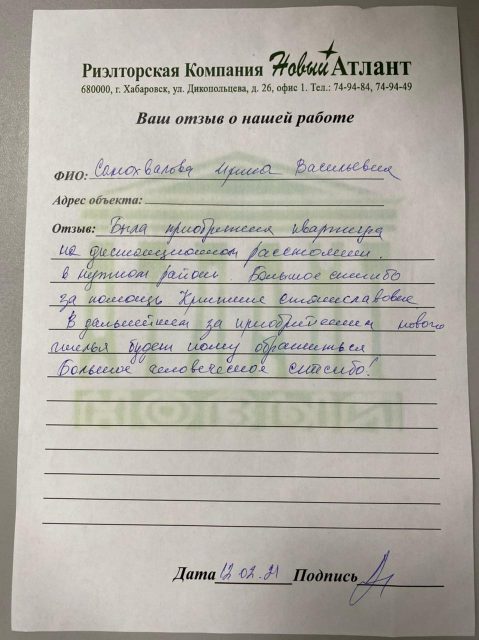 Риэлторская Компания Новый Атлант
680000, г. Хабаровск, ул. Дикопольцева, д. 26, офис 1. Тел.: 74-94-84, 74-94-49
Ваш отзыв о нашей работе
ФИО: Самохвалова Ирина Васильевна
Адрес объекта:
Отзыв: Была приобретена квартира
на дистанционном расстоянии.
в нужном районе. Большое спасибо
за помощь Кристине Станиславовне
В дальнейшем за приобритением нового
жилья будем к кому обратиться
Большое человеческое спасибо!
Дата 12 02. 21 Подпись